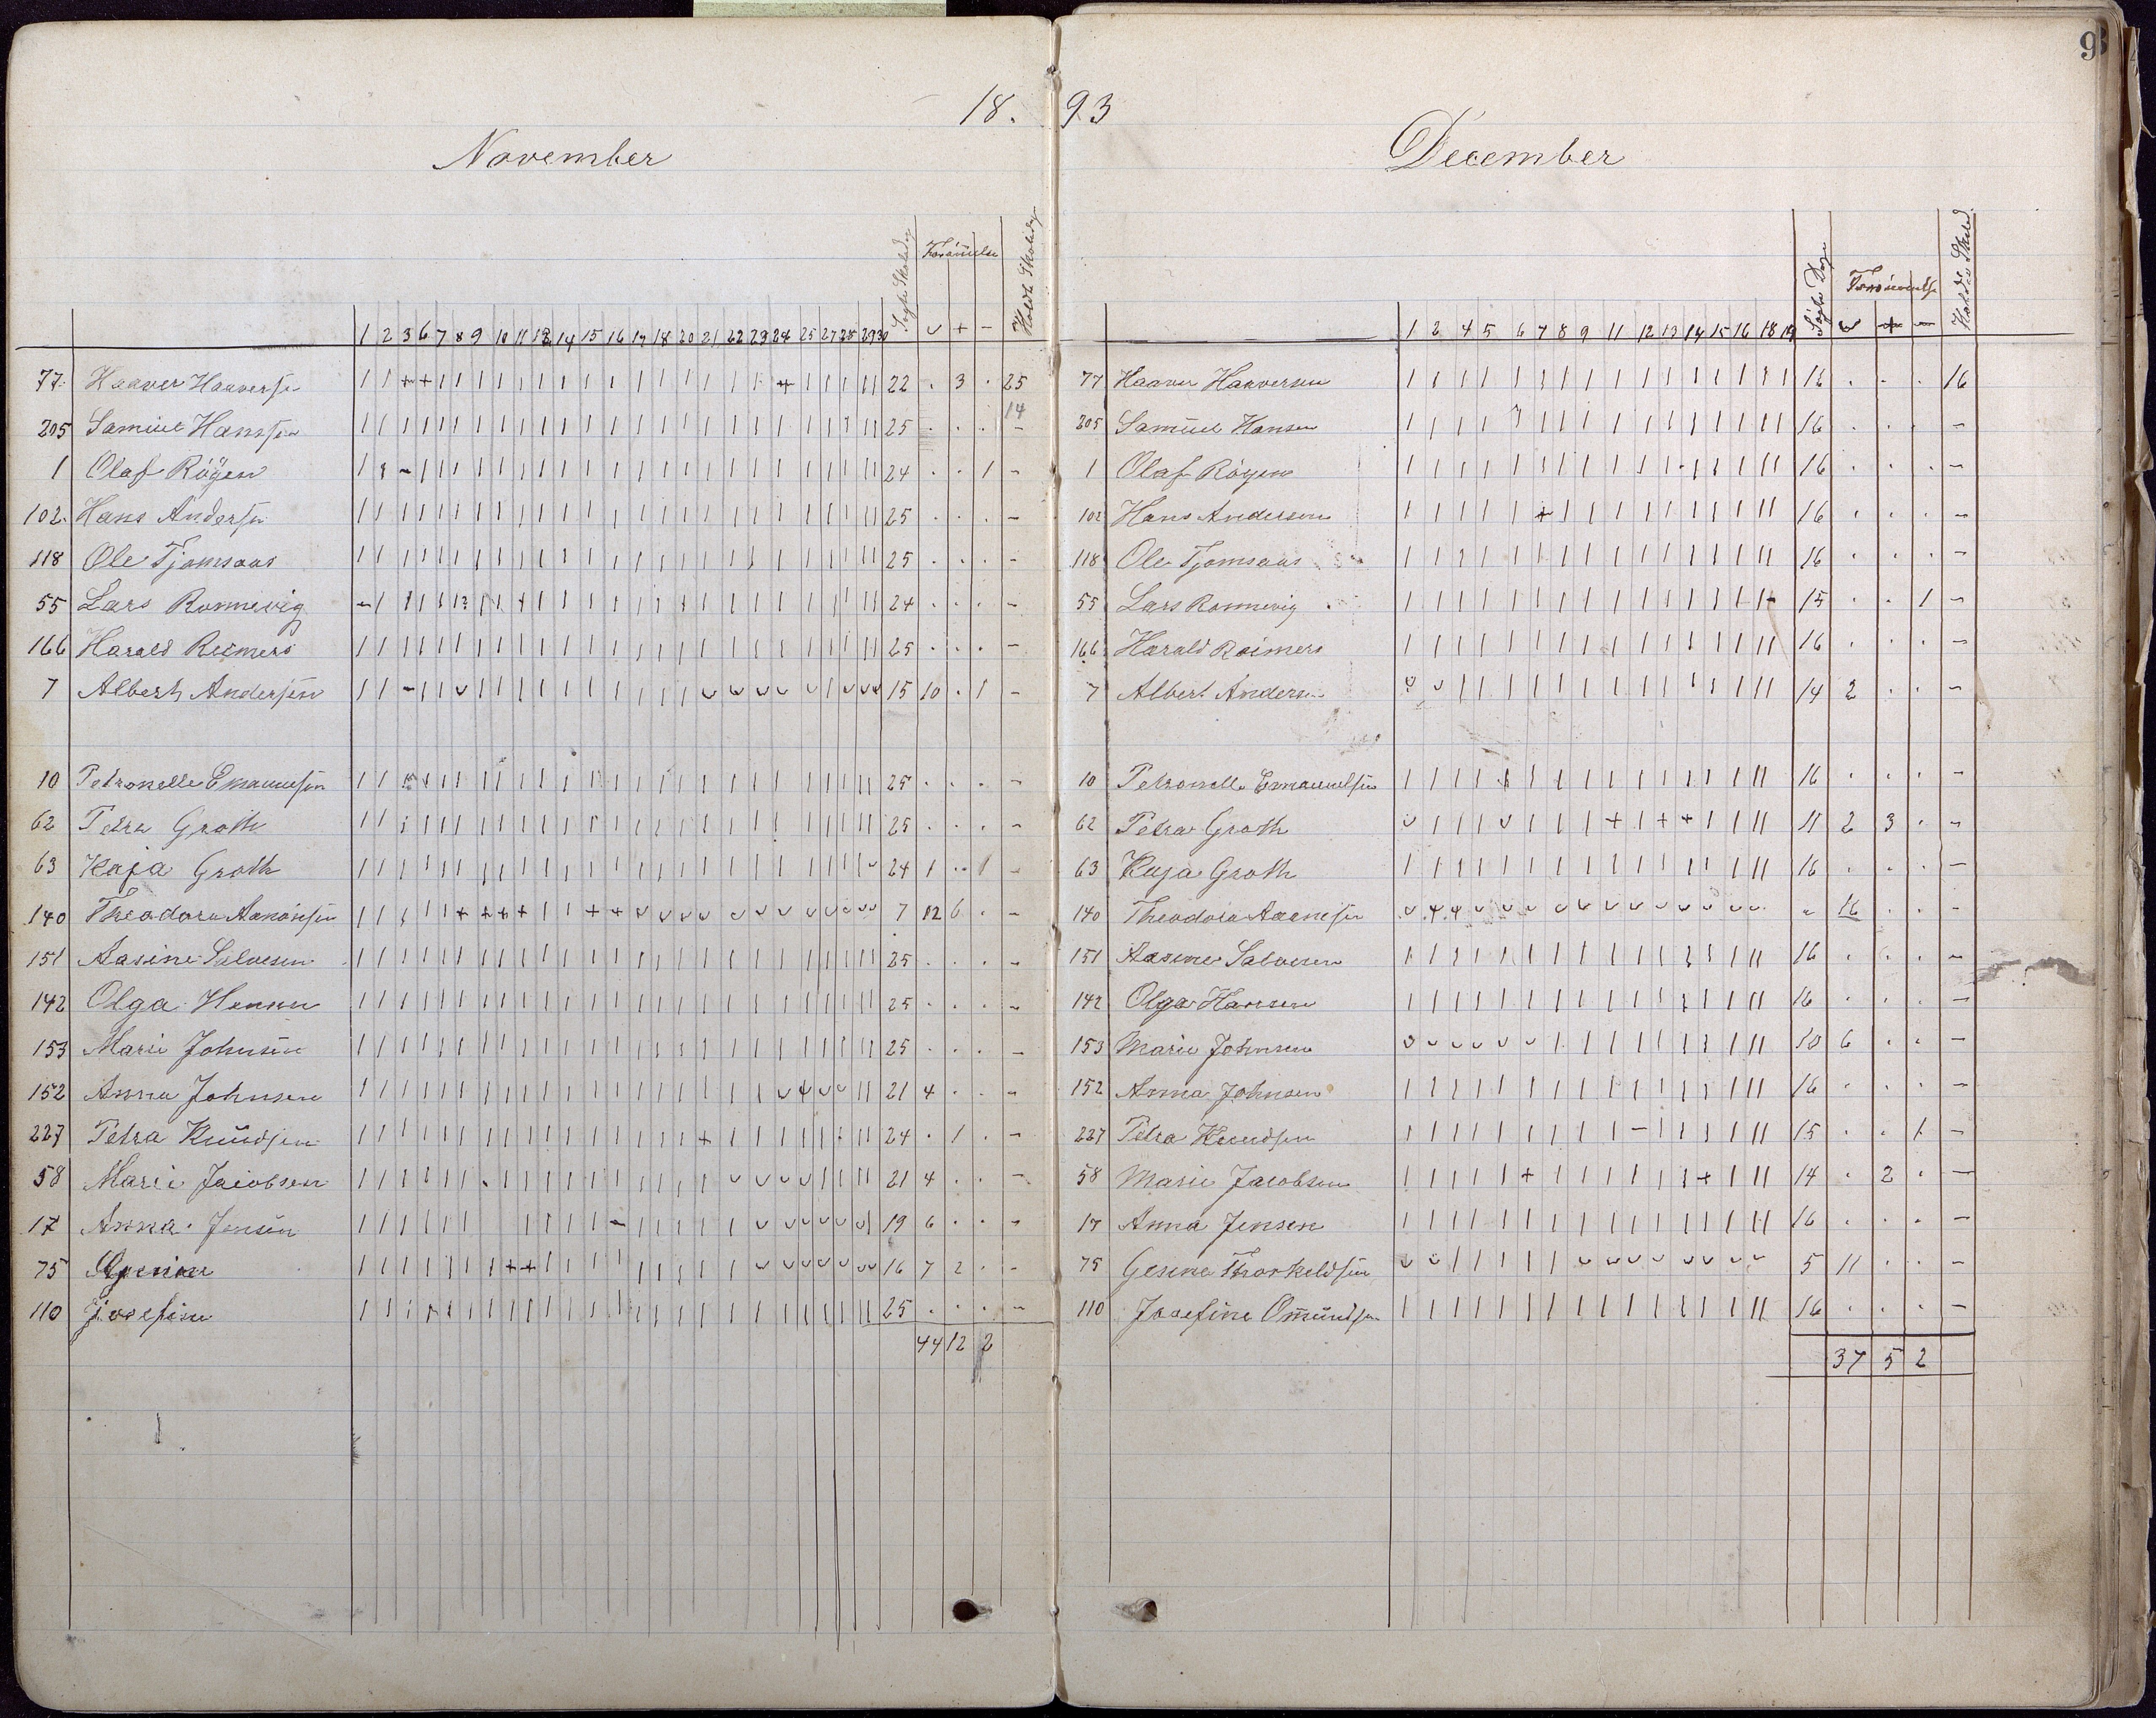 9
18. 93
November
Søgte Skoledag Forsømmelse Holdt Skoledag
1 2 3 6 7 8 9 10 11 13 14 15 16 17 18 20 21 22 23 24 25 27 28 29 30 ᴗ + -
77. Haaver Haaversen 1 1 + + 1 1 1 1 1 1 1 1 1 1 1 1 1 1 1 + 1 1 1 1 1 22 . 3 . 25
14
205 Samuel Hanssen 25 . . . -
1 Olaf Röÿen 24 . . 1 -
102. Hans Andersen 25 . . . -
118 Ole Tjomsaas 25 . . . -
55 Lars Ronnevig 24 . . . -
166 Harald Reimers 25 . . . -
7 Albert Andersen 15 10 . 1 -
10 Petronelle Emanuelsen 25 . . . -
62 Petra Groth 25 . . . -
63 Kaja Groth 24 1 . 1 -
140 Theodora Aanonsen 7 12 6 . -
151 Aasine Salvesen 25 . . . -
142 Olga Hansen 25 . . . -
153 Marie Johnsen 25 . . . -
152 Anna Johnsen 21 4 . . -
227 Petra Knudsen 24 . 1 . -
58 Marie Jacobsen 21 4 . . -
17 Anna Jensen 19 6 . . -
75 16 7 2 . -
110 Josefine 25 . . . -
44 12 2
December
Søgte Dage Forsømmelse Holdte Skoled.
1 2 4 5 6 7 8 9 11 12 13 14 15 16 18 19 ᴗ + -
77 Haaver Haaversen 16 . . . 16
205 Samuel Hansen 16 . . . -
1 Olaf Röyen 16 . . . -
102 Hans Andersen 16 . . . -
118 Ole Tjomsaas 16 . . . -
55 Lars Ronnevig 15 . . 1 -
166 Harald Reimers 16 . . . -
7 Albert Andersen 14 2 . . -
10 Petronelle Emanuelsen 16 . . . -
62 Petra Groth 11 2 3 . -
63 Kaja Groth 16 . . . -
140 Theodora Aanonsen " 16 . . -
151 Aasine Salvesen 16 . . . -
142 Olga Hansen 16 . . . -
153 Marie Johnsen 10 6 . . -
152 Anna Johnsen 16 . . . -
227 Petra Knudsen 15 . . 1 -
58 Marie Jacobsen 14 . 2 . -
17 Anna Jensen 16 . . . -
75 Gesine Thorkeldsen 5 11 . . -
110 Josefine Omundsen 16 . . . -
37 5 2